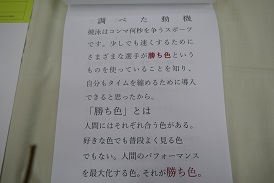 調べた動機
競泳はコンマ何秒を争うスポーツ
です。少しでも速くするために
さまざまな選手が勝ち色という
ものを使っていることを知り、
自分もタイムを縮めるために導入
できると思ったから。
「勝ち色」とは
人間にはそれぞれ合う色がある。
好きな色でも普段よく見る色
でもない。人間のパフォーマンス
を最大化する色。それが勝ち色。